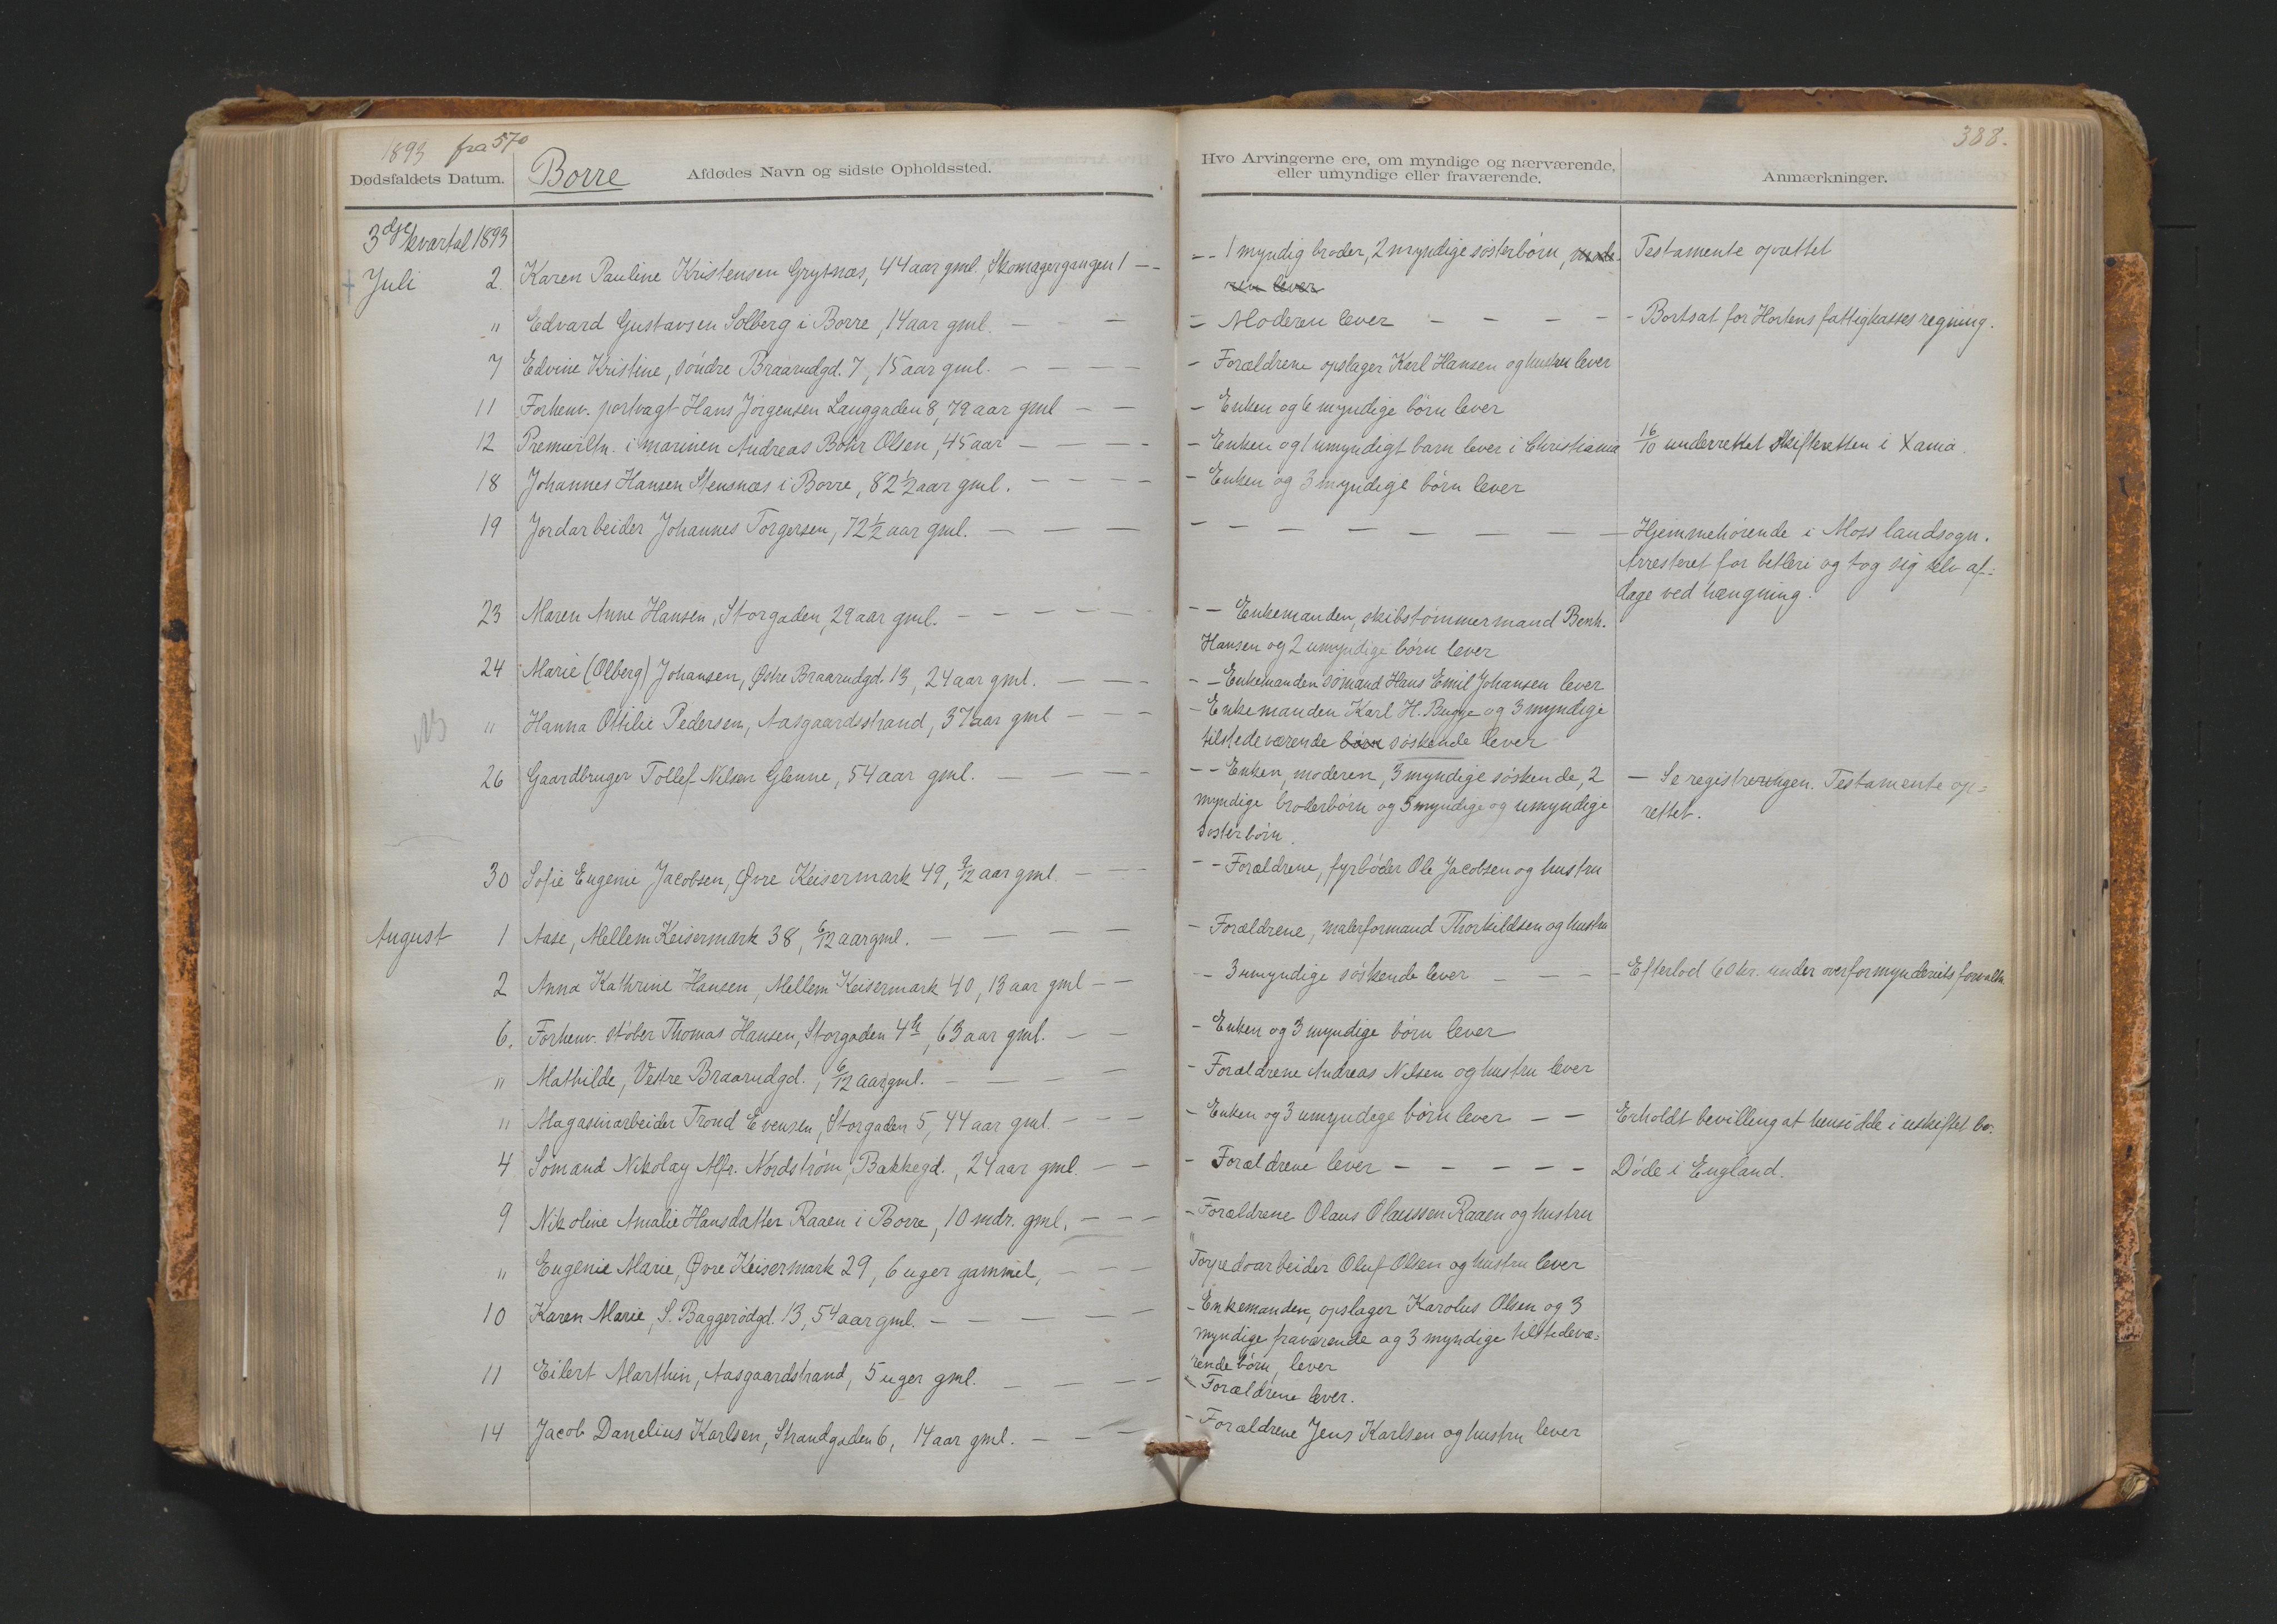 1893 fra 570
388.
Dødsfaldets Datum. Borre Afdødes Navn og sidste Opholdssted. Hvo Arvingerne ere, om myndige og nærværende, eller umyndige eller fraværende. Anmærkninger.
3dje kvartal 1893
Juli 2. Karen Pauline Kristensen Grytnæs, 44 aar gml., Skomagergangen 1 — — 1 myndig broder, 2 myndige søsterbørn, mode- Testamente oprettet
ren lever
" Edvard Gustavsen Solberg i Borre, 14 aar gml. — — Moderen lever — — — — Bortsat for Hortens fattigkasses regning.
7 Edvine Kristine, søndre Braarudgd. 7, 15 aar gml. — — — — Forældrene opslager Karl Hansen og hustru lever
11 Forhenv. portvagt Hans Jørgensen Langgaden 8, 79 aar gml — — — Enken og 6 myndige børn lever
12 Premierltn. i marinen Andreas Bohr Olsen, 45 aar — — — — Enken og 1 umyndigt barn lever i Christiania 16/10 underrettet Skifteretten i Xania.
18 Johannes Hansen Stensnæs i Borre, 82 1/2 aar gml. — — — — Enken og 3 myndige børn lever
19 Jordarbeider Johannes Torgersen, 72 1/2 aar gml. — — — — — — — — — Hjemmehørende i Moss landsogn.
Arresteret for betleri og tog sig selv af-
dage ved hængning.
23 Maren Anne Hansen, Storgaden, 29 aar gml. — — — — Enkemanden, skibstømmermand Benh.
Hansen og 2 umyndige børn lever
24 Marie (Olberg) Johansen, Østre Braarudgd. 13, 24 aar gml. — — — Enkemanden sømand Hans Emil Johansen lever
" Hanna Ottilie Pedersen, Aasgaardsstrand, 37 aar gml — — — Enkemanden Karl H. Bugge og 3 myndige
tilstedeværende børn søskende lever
26 Gaardbruger Tollef Nilsen Glenne, 54 aar gml. — — — — Enken, moderen, 3 myndige søskende, 2 — Se registreringen. Testamente op-
myndige broderbørn og 5 myndige og umyndige rettet.
søsterbørn.
30 Sofie Eugenie Jacobsen, Øvre Keisermark 49, 9/12 aar gml. — — — Forældrene, fyrbøder Ole Jacobsen og hustru
August 1 Aase, Mellem Keisermark 38, 6/12 aar gml. — — — — Forældrene, malerformand Thorkildsen og hustru
2 Anna Kathrine Hansen, Mellem Keisermark 40, 13 aar gml — — — 3 umyndige søskende lever — — — Efterlod 60 kr. under overformynderiets forvaltn.
6. Forhenv. støber Thomas Hansen, Storgaden 4b, 63 aar gml. — — Enken og 3 myndige børn lever
" Mathilde, Vestre Braarudgd., 6/12 aar gml. — — — — Forældrene Andreas Nilsen og hustru lever
" Magasinarbeider Trond Evensen, Storgaden 5, 44 aar gml. — — — Enken og 3 umyndige børn lever — — Erholdt bevilling at hensidde i uskiftet bo.
4 Sømand Nikolay Alfr. Nordstrøm, Bakkegd., 24 aar gml. — — Forældrene lever — — — — — Døde i England.
9 Nikoline Amalie Hansdatter Raaen i Borre, 10 mdr. gml. — — — Forældrene Olaus Olaussen Raaen og hustru
" Eugenie Marie, Øvre Keisermark 29, 6 uger gammel, — — — Torpedoarbeider Oluf Olsen og hustru lever
10 Karen Marie, S. Baggerødgd. 13, 54 aar gml. — — — — Enkemanden, opslager Karolus Olsen og 3
myndige fraværende og 3 myndige tilstedevæ-
rende børn, lever
11 Eilert Marthin, Aasgaardstrand, 5 uger gml. — — — — Forældrene lever.
14 Jacob Danelius Karlsen, Strandgaden 6, 14 aar gml. — — — Forældrene Jens Karlsen og hustru lever